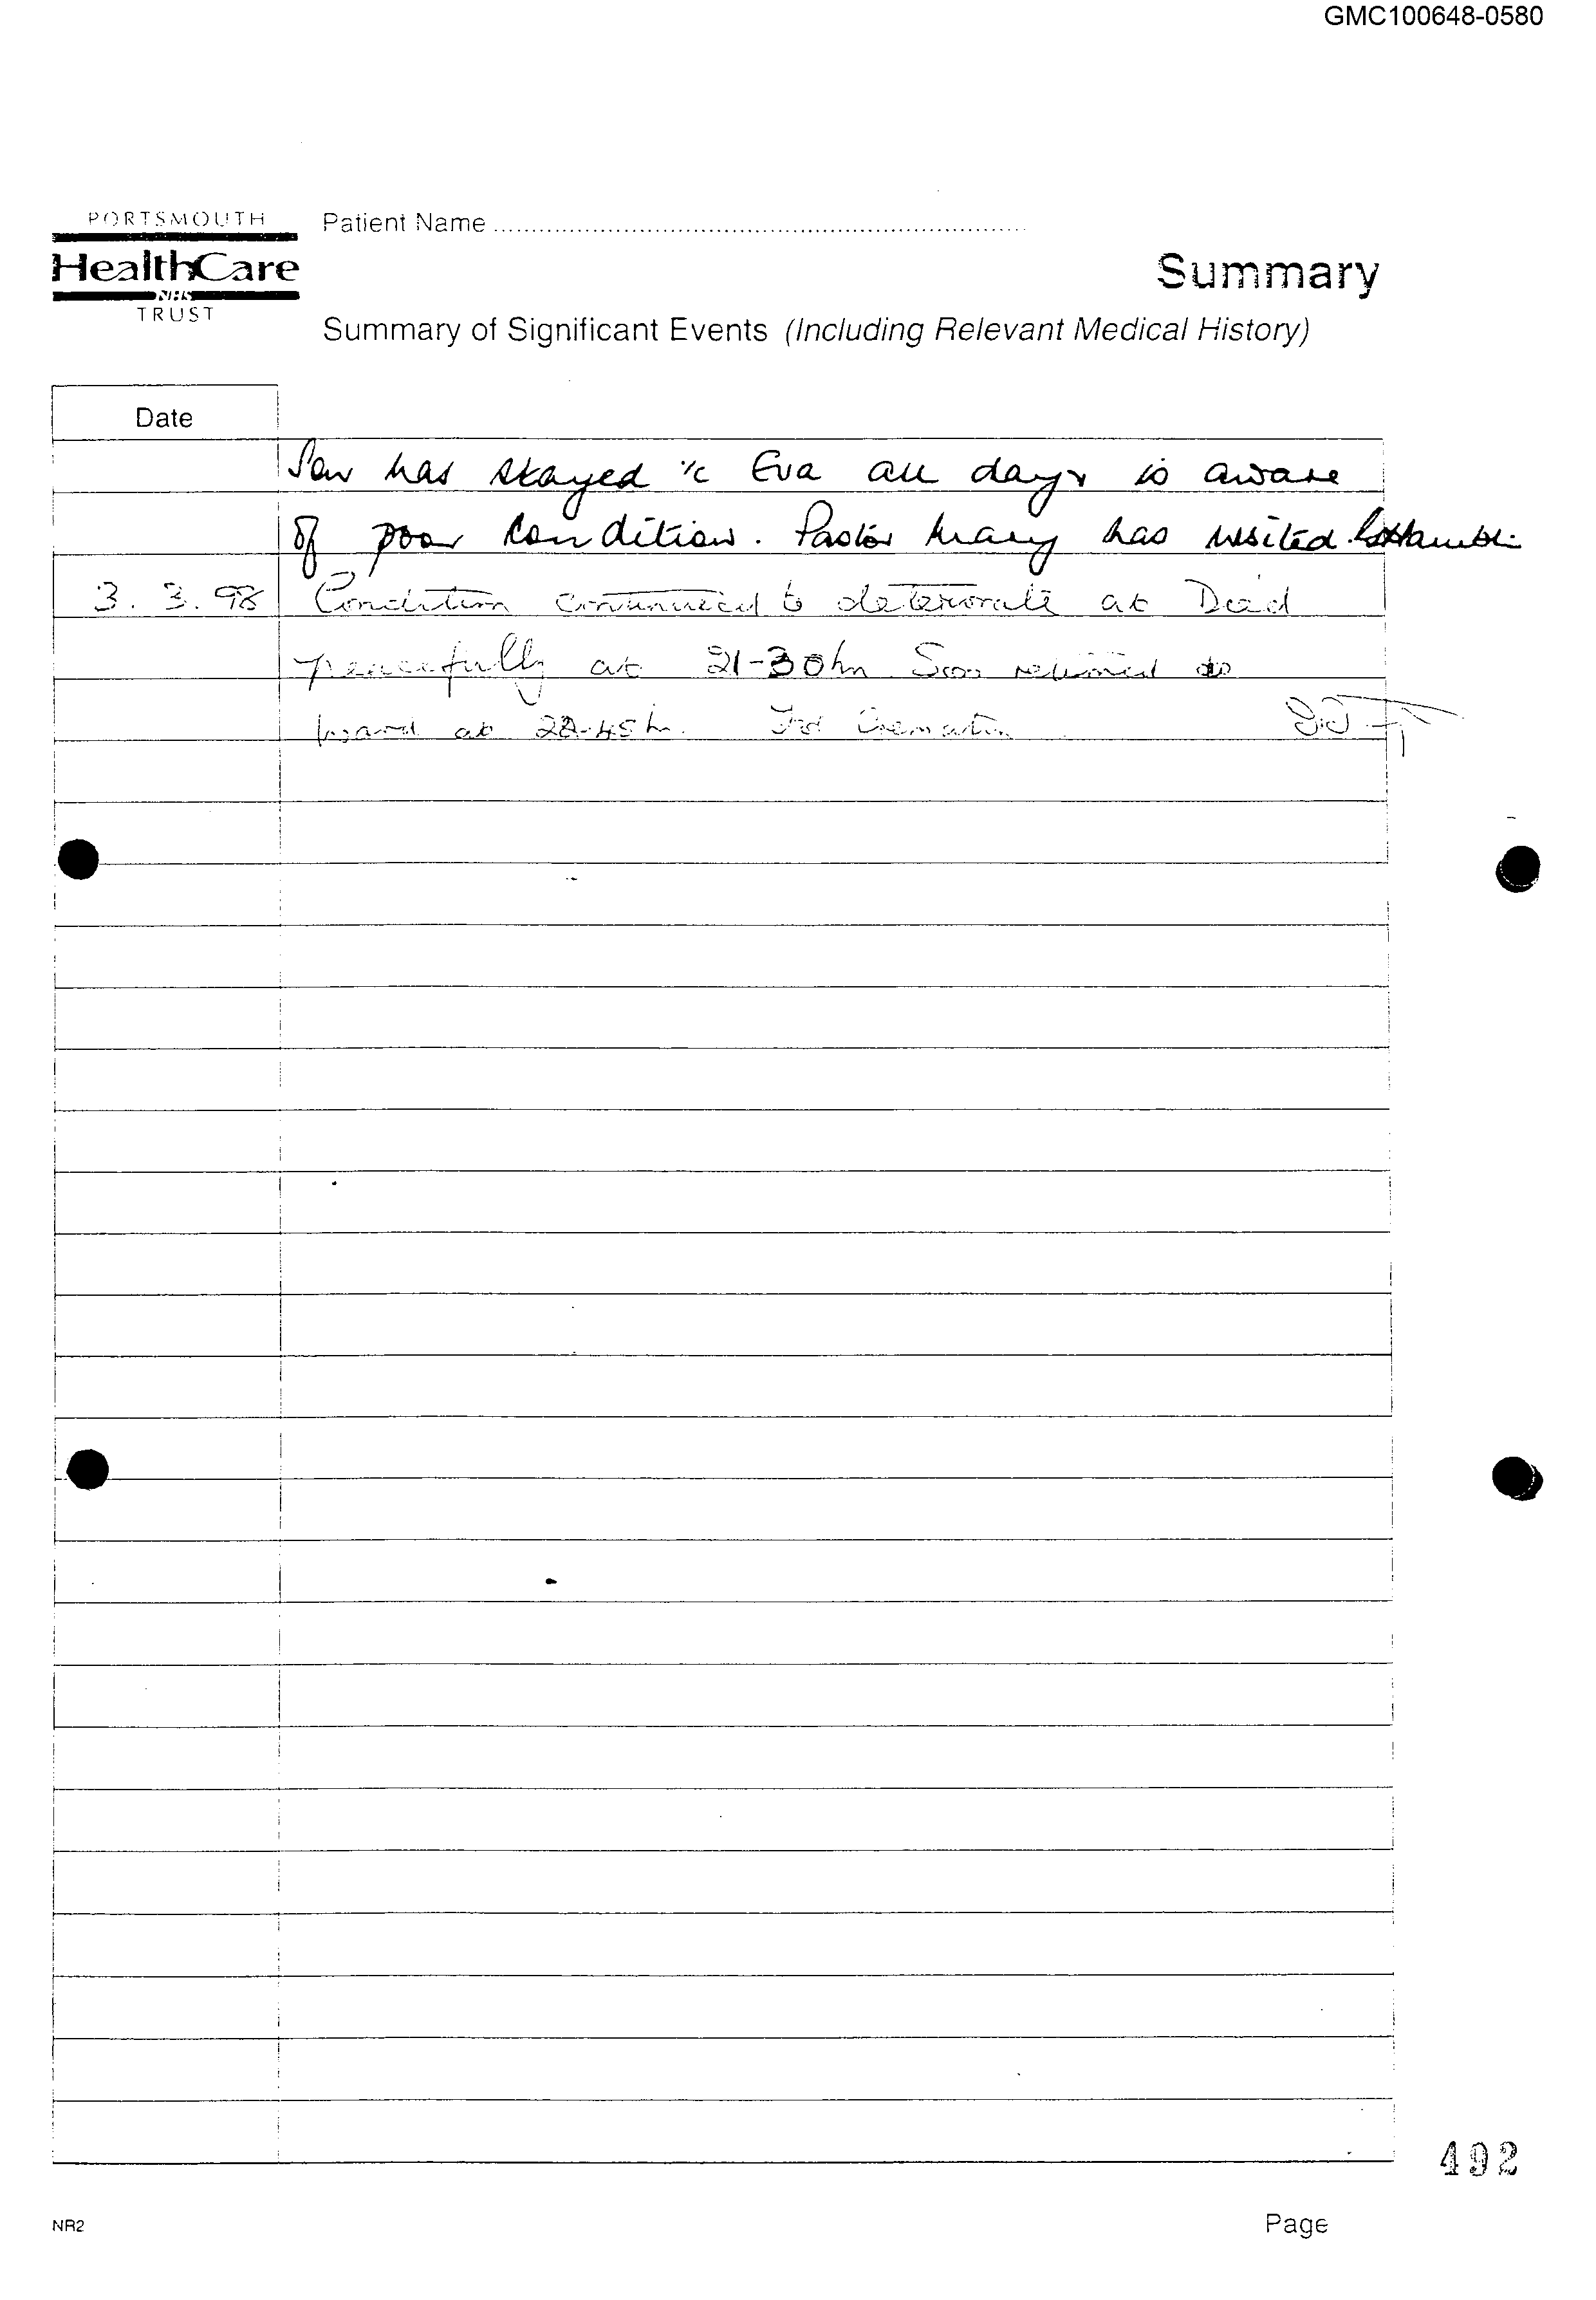 GMC100648-0580
PORTSMOUTH
HealthCare
NHS
TRUST
Patient Name
Summary
Summary of Significant Events (Including Relevant Medical History)
Date
Son has stayed c Eva all day is aware
of poor condition. Pastor Mary has visited.
3.3.98 Condition continued to deteriorate at Died
peacefully at 21-30hr Son returned to
ward at 22.45h. For Cremation
492
NR2
Page